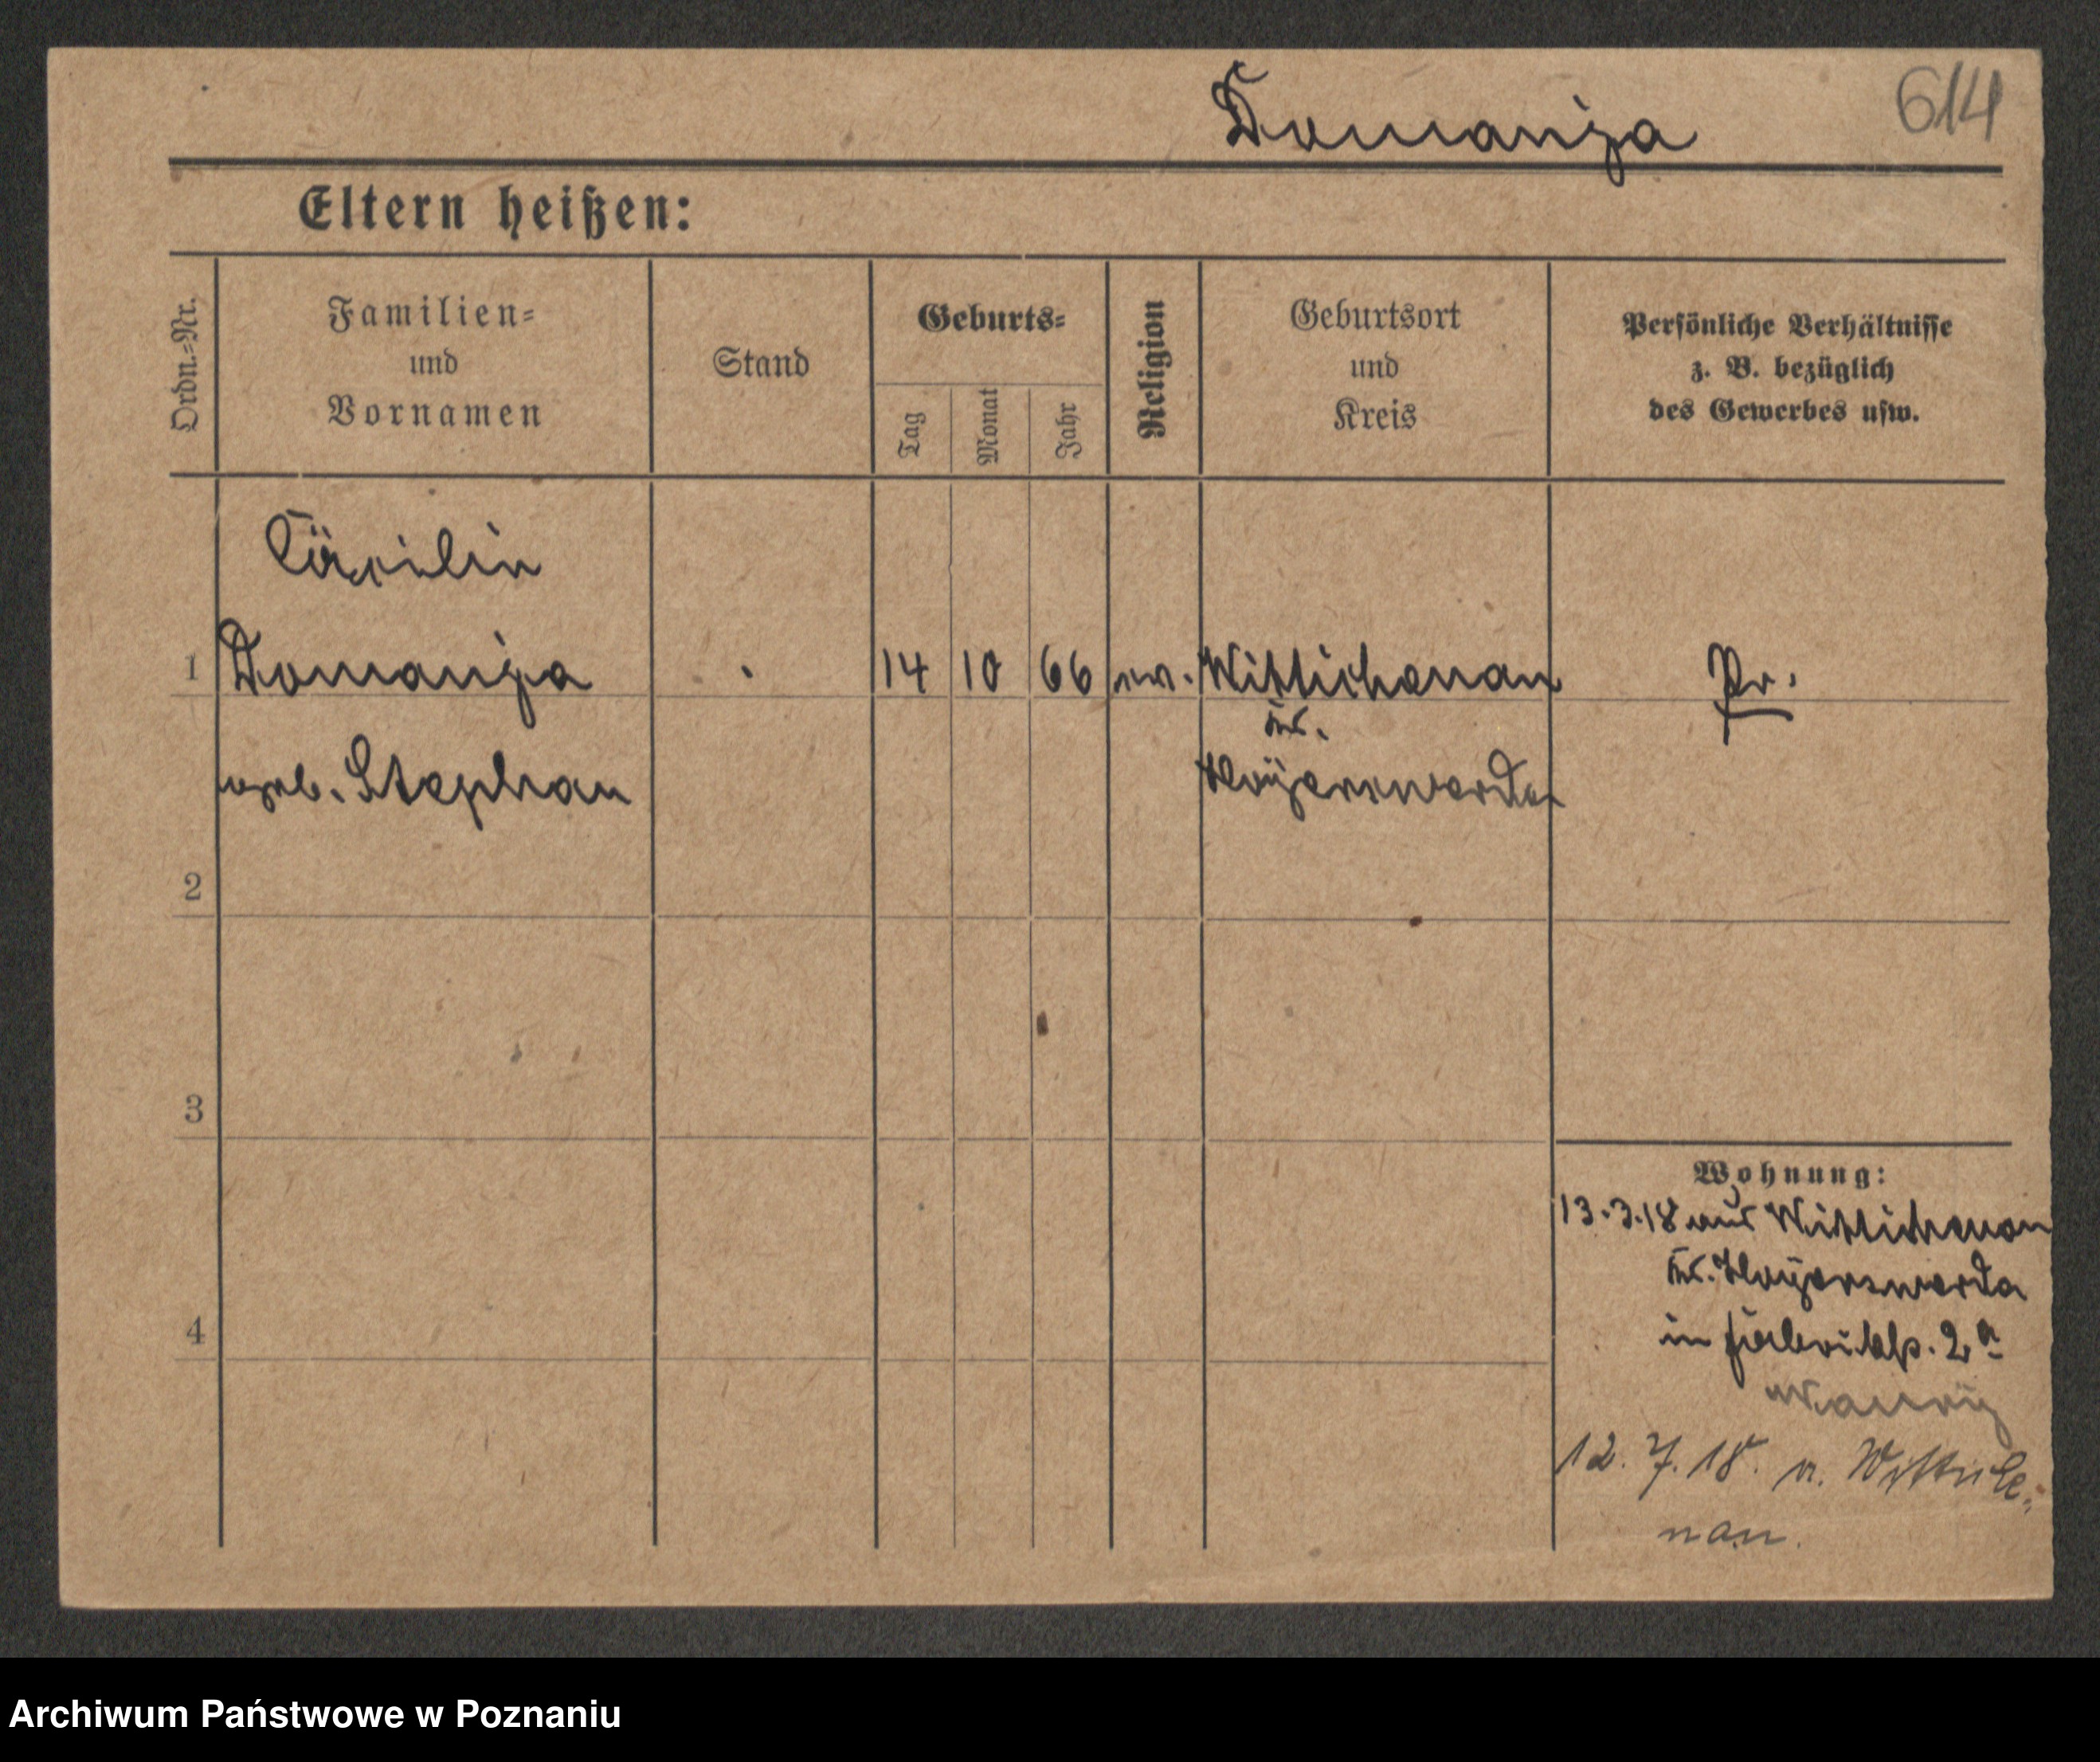 Domanja
614
Eltern heißen:
Ordn.=Nr.
Familien=
und
Vornamen
Stand
Geburts=
Tag
Monat
Jahr
Religion
Geburtsort
und
Kreis
Persönliche Verhältnisse
z. B. bezüglich
des Gewerbes usw.
Cäcilie
1 Domanja 14 10 66 Wittichenau Pr.
Kr.
geb. Stephan Hoyerswerda
2
3
Wohnung:
13.3.18 aus Wittichenau
Kr. Hoyerswerda
4 in Fabrikst. 2a
12. 7. 18. n. Wittiche=
nau.
Archiwum Państwowe w Poznaniu